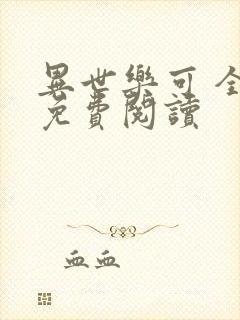 異世樂可 全
免費閱讀
血血